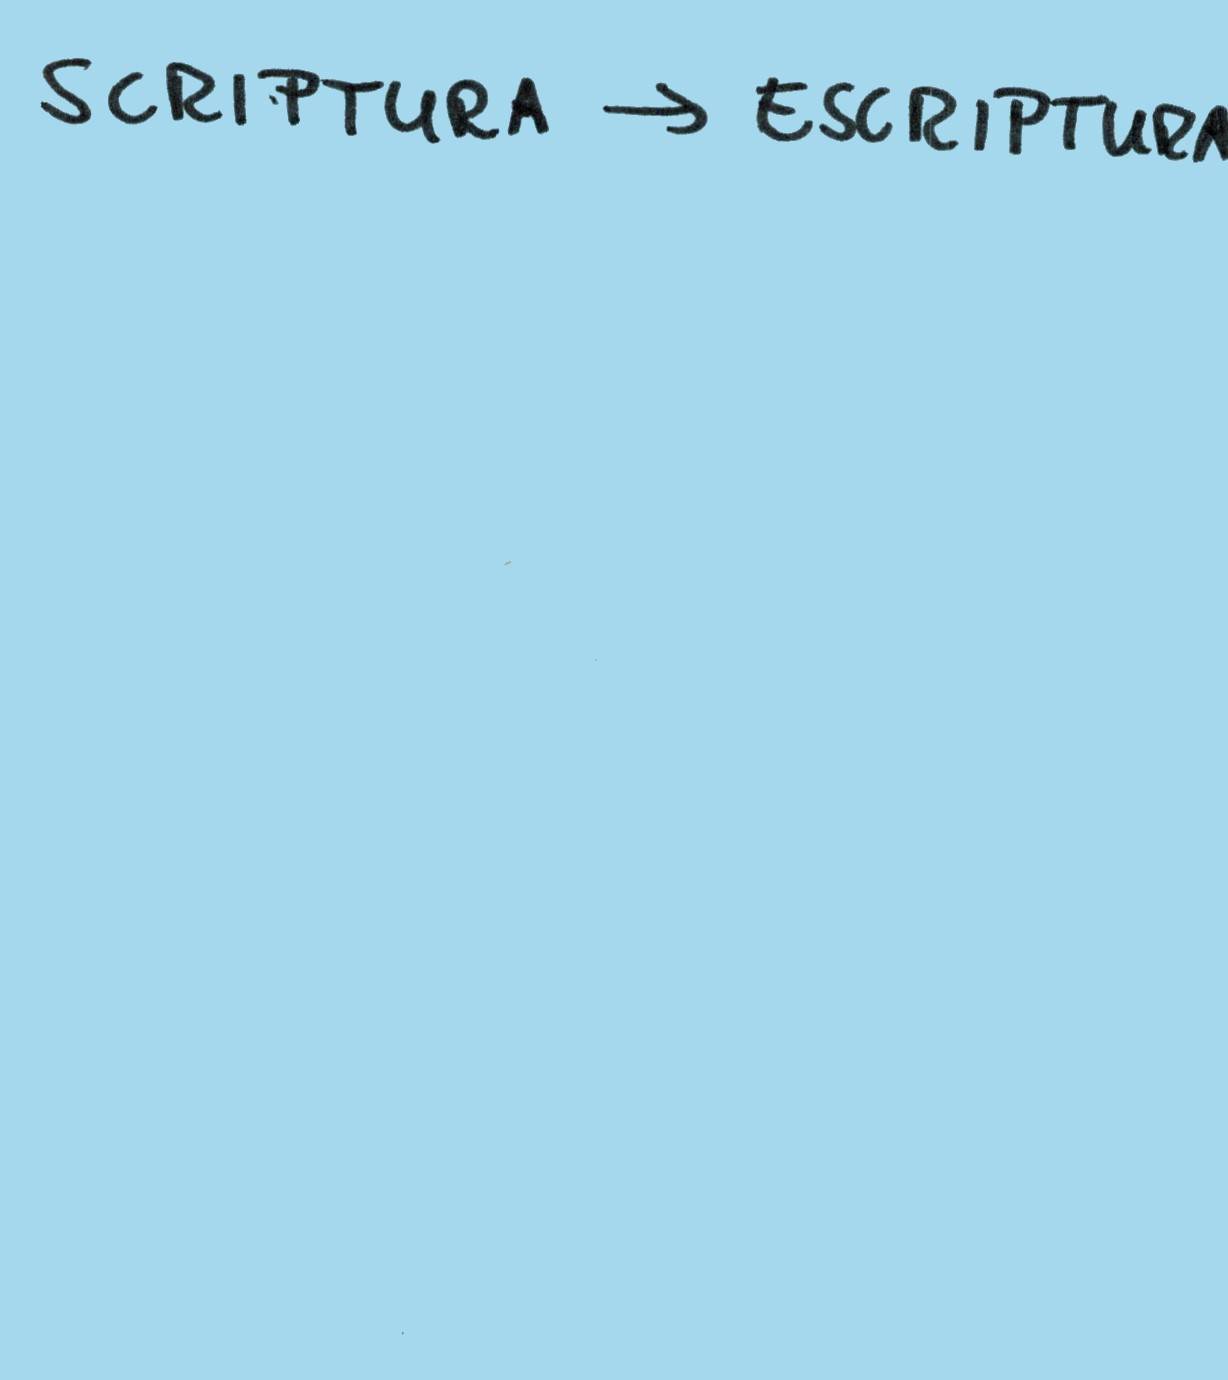 SCRIPTURA → ESCRIPTURA